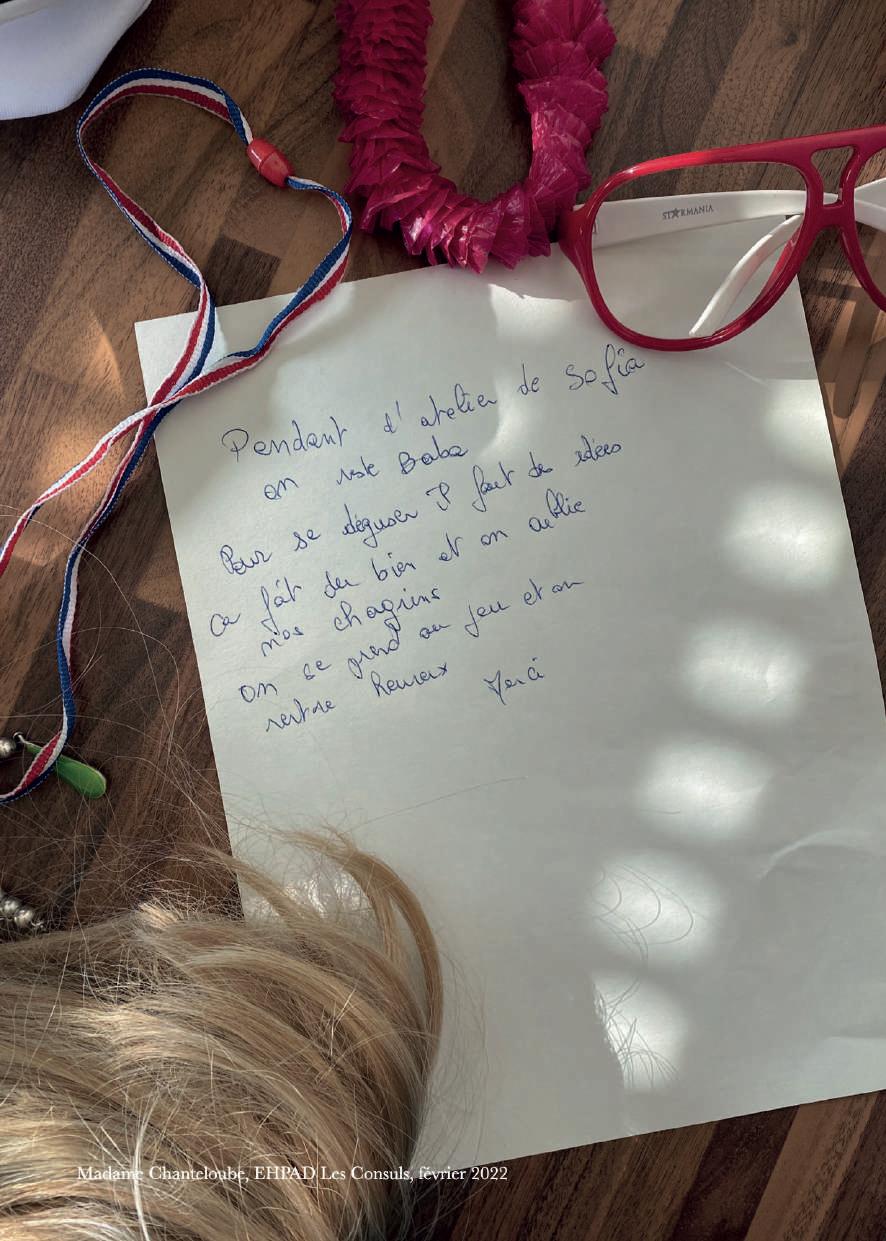 ST★RMANIA
Pendant l'atelier de Sofia
on reste Baba
Pour se déguser I faut des idées
ca fàt du bien et on oublie
nos chagrins
on se prend au jeu et on
rentre heureux Merci
Madame Chanteloube, EHPAD Les Consuls, février 2022